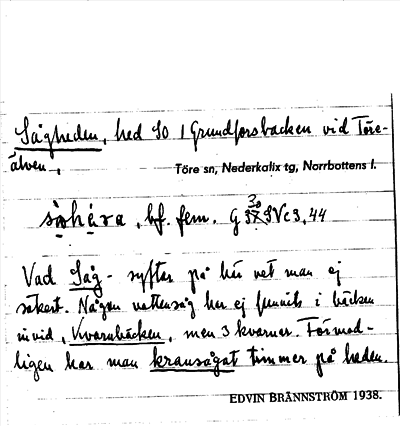 Sågheden, hed SO i Grundforsbacken vid Töre-
älven,
Töre sn, Nederkalix tg, Norrbottens l.
bf. fem. G 30 SVc3, 44
Vad Såg- syftar på här vet man ej
säkert. Någon vattensåg har ej funnits i bäcken
invid, Kvarnbäcken, men 3 kvarnar. Förmod-
ligen har man kransågat timmer på heden.
EDVIN BRÄNNSTRÖM 1938.